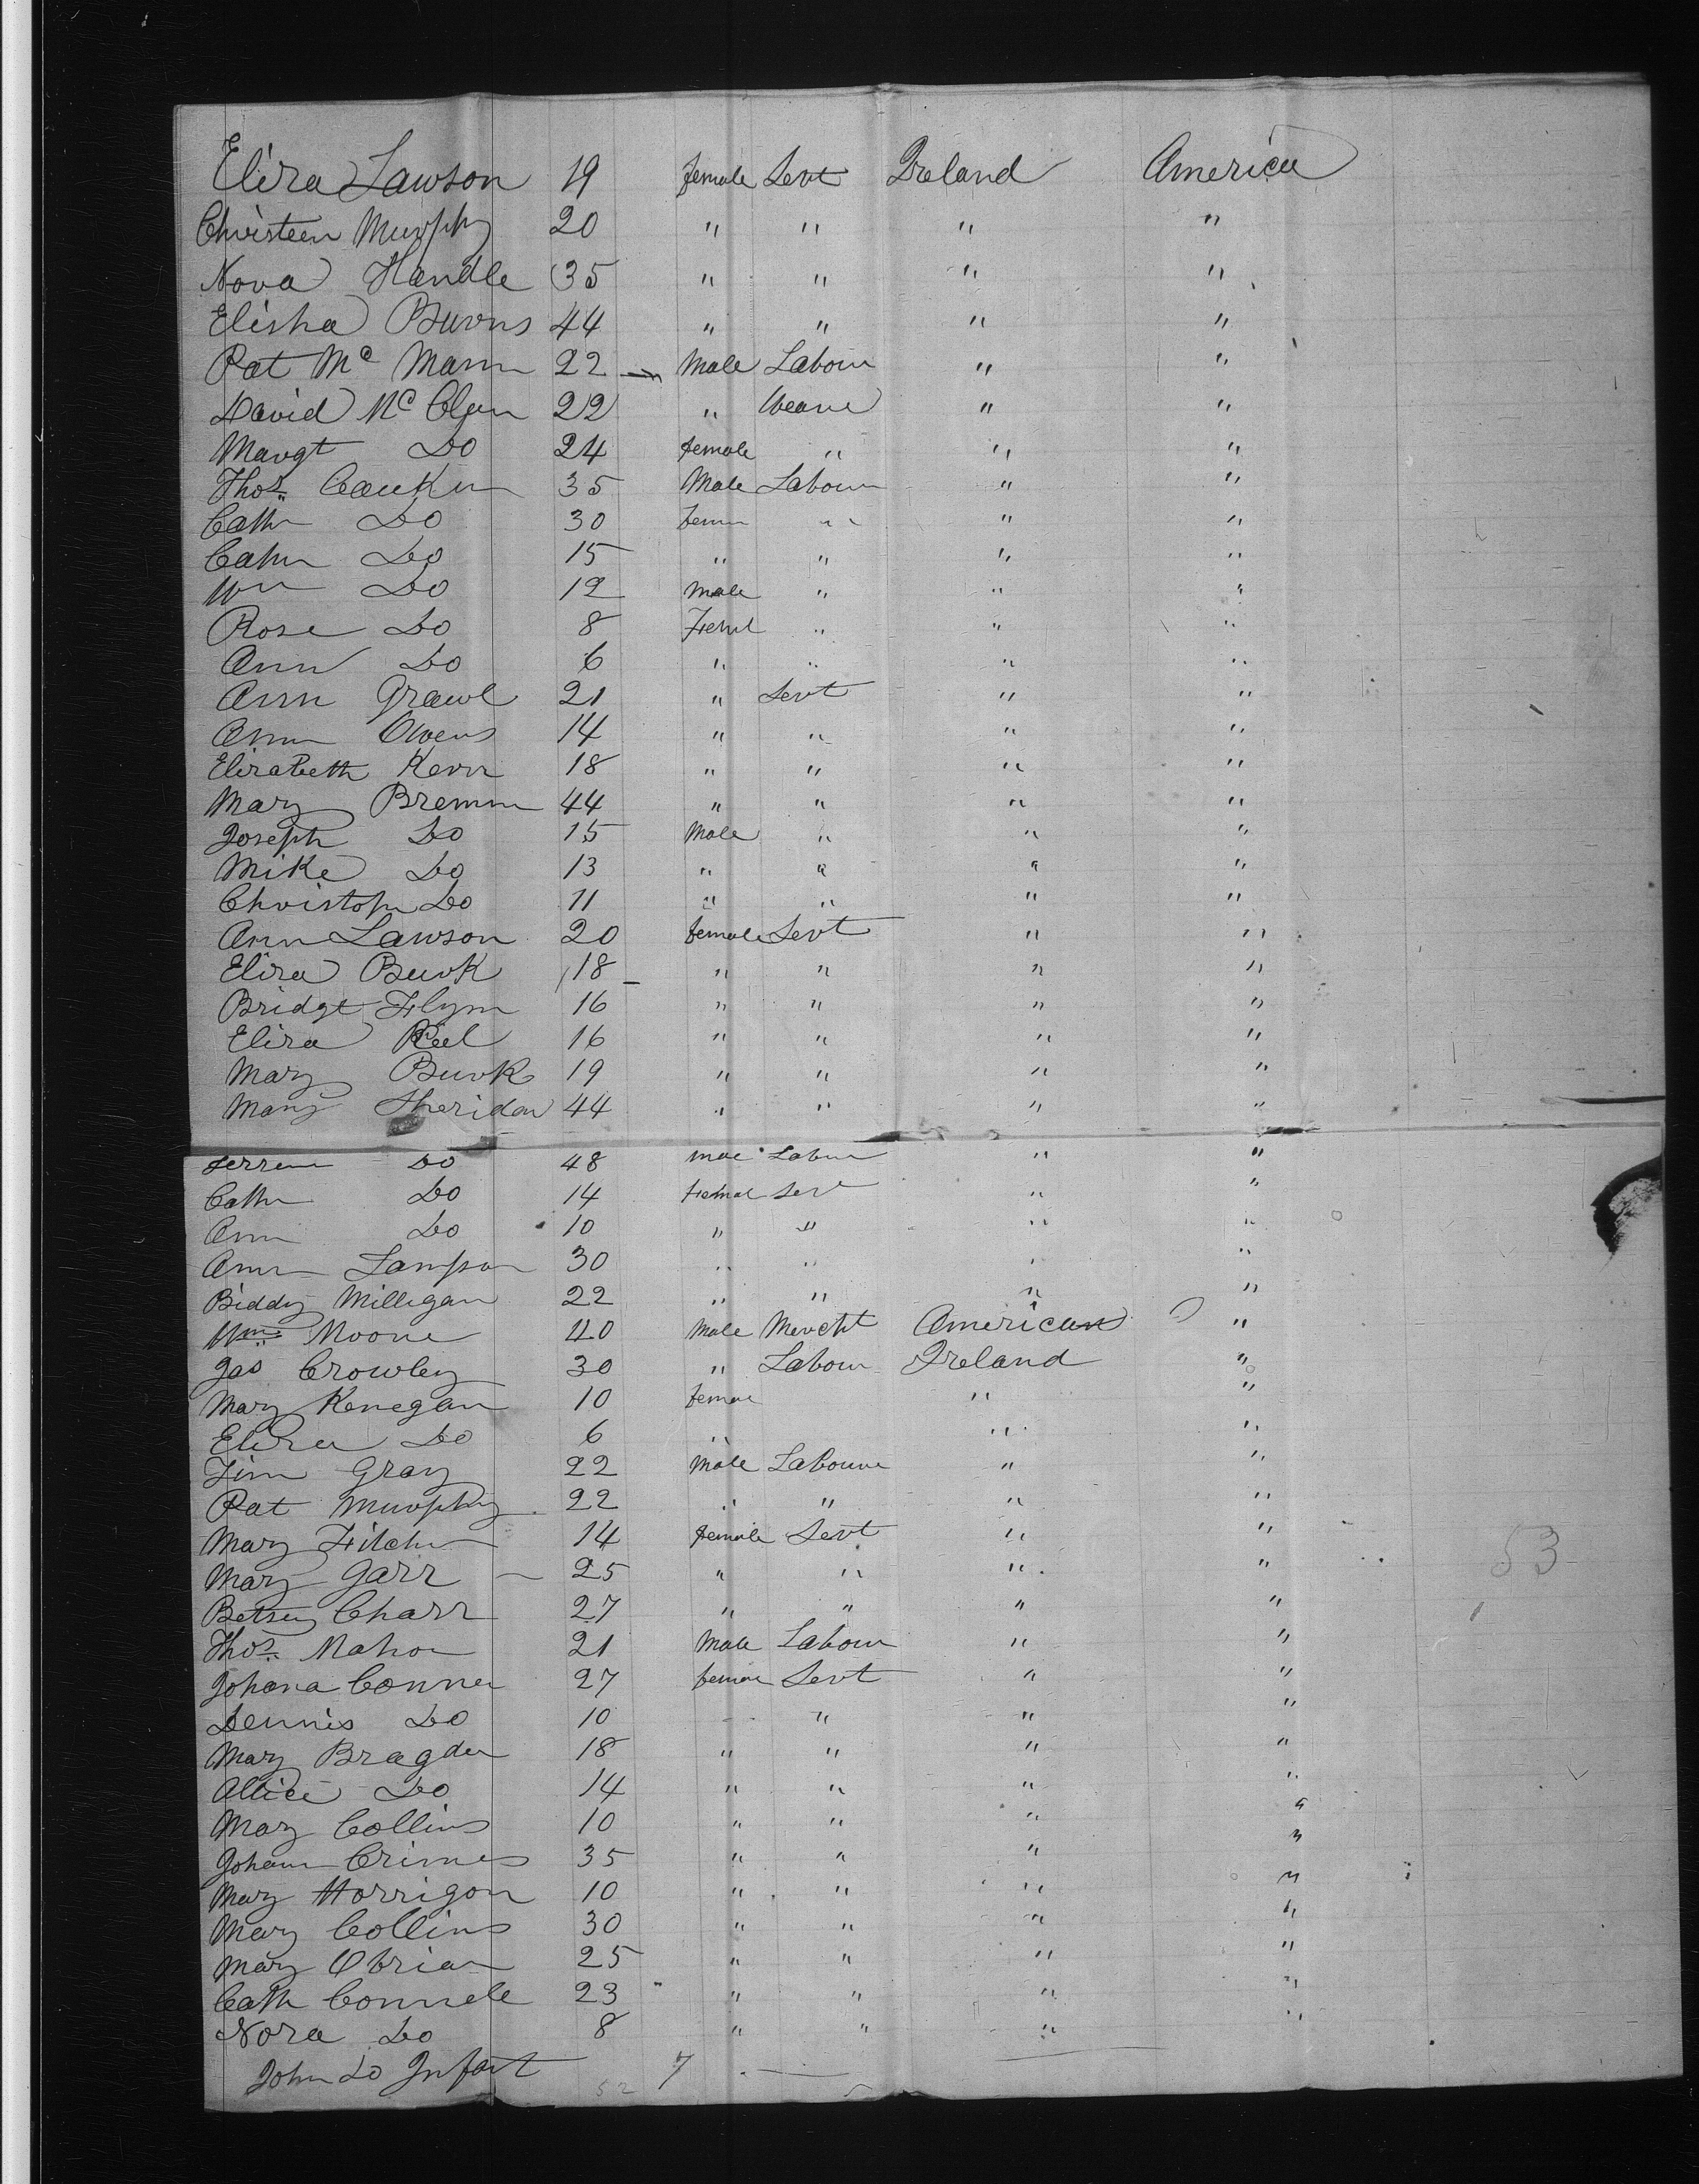 Eliza Lawson 19 female Servt Ireland America
Christeen Murphy 20 " " " "
Nora Handle 35 " " " "
Elisha Burns 44 " " " "
Pat Mc Mann 22 Male Labour " "
David Mc Clan 22 " Weave " "
Margt Do 24 female " " "
Thos Caukin 35 Male Labour " "
Cath Do 30 fem " " "
Cath Do 15 " " " "
Wm Do 12 male " " "
Rose Do 8 Feml " " "
Ann Do 6 " " " "
Ann Grawl 21 " Servt " "
Ann Owens 14 " " " "
Elizabeth Kerr 18 " " " "
Mary Bremn 44 " " " "
Joseph Do 15 Male " " "
Mike Do 13 " " " "
Christoph Do 11 " " " "
Ann Lawson 20 female Servt " "
Eliza Burk 18 " " " "
Bridgt Flynn 16 " " " "
Eliza Reel 16 " " " "
Mary Burk 19 " " " "
Mary Sheridan 44 " " " "
Do 48 mae Labur " "
Cath Do 14 Femal Serv " "
Ann Do 10 " " " "
Ann Lampson 30 " " " "
Biddy Milligan 22 " " " "
Wm Moore 40 Male Mercht American "
Jas Crowley 30 " Labour Ireland "
Mary Kenegan 10 femae " "
Eliza Do 6 " " "
Tim Gray 22 Male Laboure " "
Pat Murphy 22 " " " "
Mary Fitch 14 female Servt " "
Mary Garr 25 " " " "
Betsey Charr 27 " " " "
Thos Mahon 21 Male Labour " "
Johana Conner 27 femae Servt " "
Dennis Do 10 " " "
Mary Bragden 18 " " " "
Allice Do 14 " " " "
Mary Collins 10 " " " "
Johan Crimes 35 " " " "
Mary Horrigon 10 " " " "
Mary Collins 30 " " " "
Mary Obrian 25 " " " "
Cath Connele 23 " " " "
Nora Do 8 " " " "
John Do Infant 7
52
53